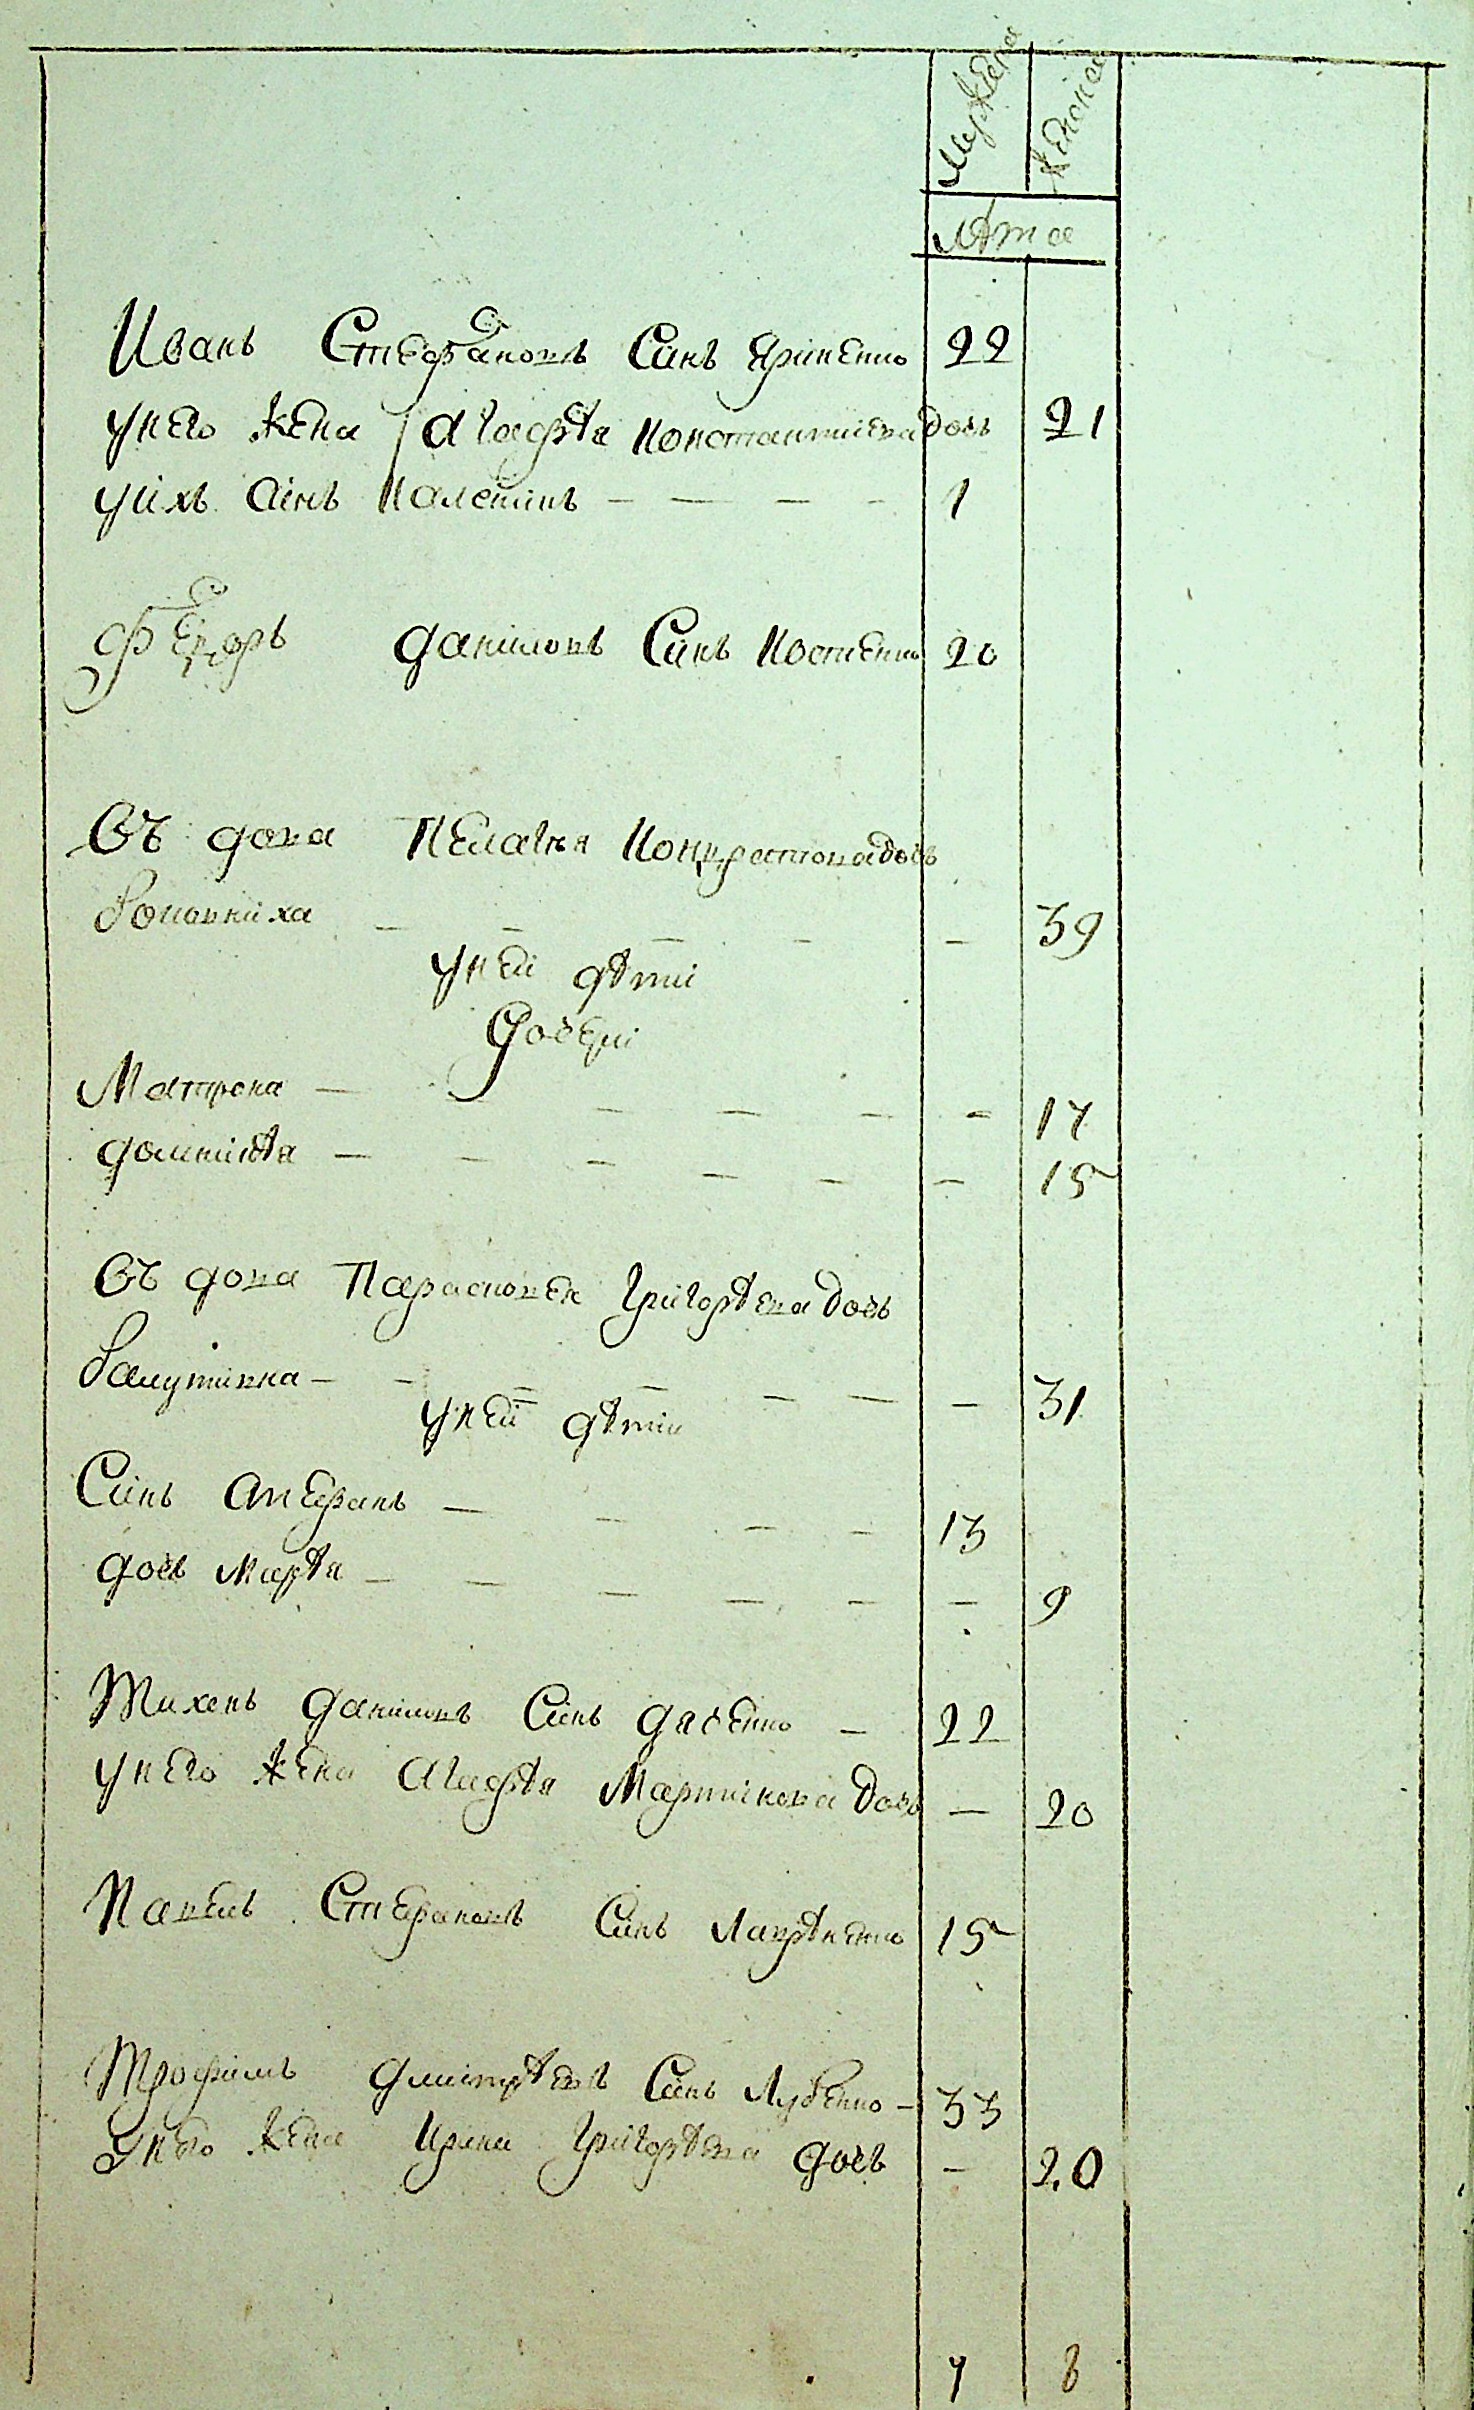 Мужеска Женска
Лѣта
Иванъ Стефановъ Синъ Яриненко 22
унего жена Агафѣя Константиева дочь 21
уихъ Синъ Калениикъ — — — — 1
Федоръ Даниловъ Синъ Костенко 20
Въдова Пелагѣя Кондратова дочь
— — — — — 39
уней дѣти
Дочери
Матрона — — — — — 17
Домникѣя — — — — — — 15
Въдова Парасковея Григорѣева дочь
— — — — — — — 31
уней дѣти
Синъ Стефанъ — — — — 13
дочь Марѣя — — — — — — 9
Тихонъ Даниловъ Синъ Даценко — 22
унего жена Агафѣя Мартинова дочь — 20
Павелъ Стефановъ Синъ Лаврѣненко 15
Трофимъ Дмитрѣевъ Синъ Лубенко — 33
унего жена Ирина Григорѣева дочь — 20
7 8